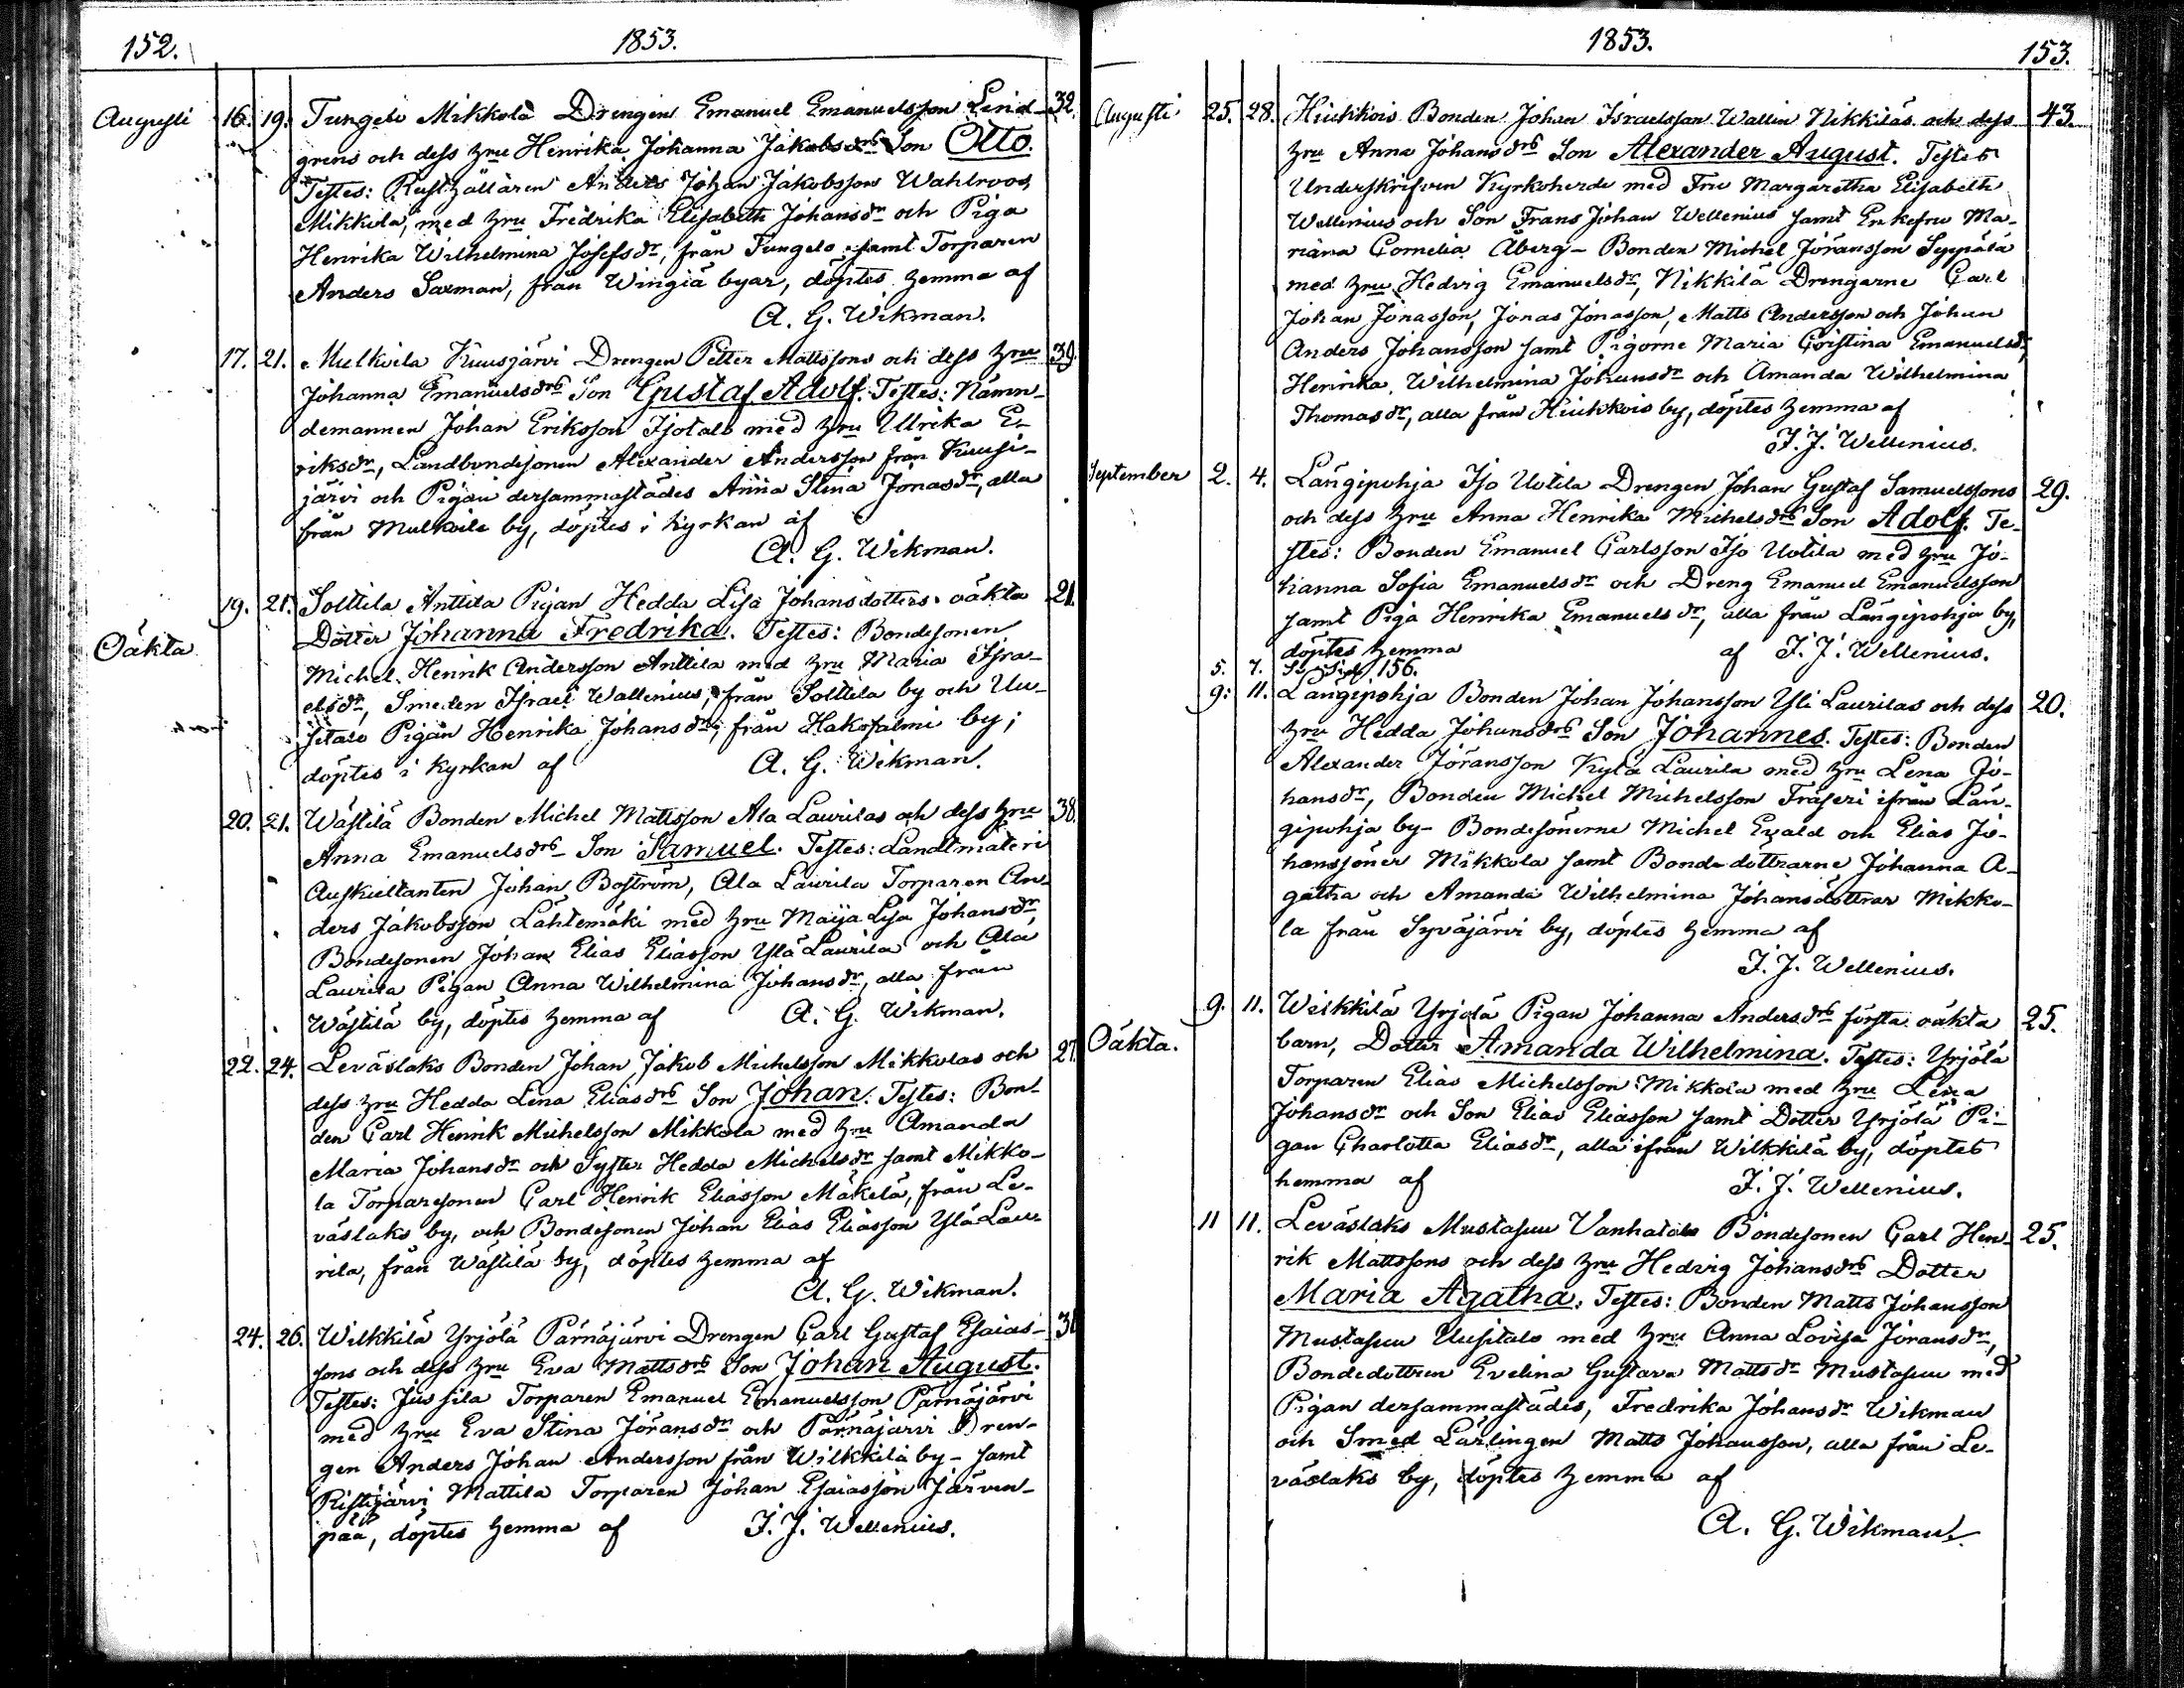 152. 1853.
Augusti 16. 19. Tungelo Mikkola Drengen Emanuel Emanuelsson Lind- 32.
grens och dess hru Henrika Johanna Jakobsdrs Son Otto.
Testes: Rusthållaren Anders Johan Jakobsson Wahlroos
Mikkola, med hru Fredrika Elisabeth Johansdr och Piga
Henrika Wilhelmina Josefsdr, från Tungelo, samt Torparen
Anders Saxman, från Wingiä byar, döptes hemma af
A. G. Wikman.
17. 21. Mulkoila Kuusjärvi Drengen Petter Mattssons och dess hru 39.
Johanna Emanuelsdrs Son Gustaf Adolf. Testes: Nämn-
demannen Johan Eriksson Isotalo med hru Ulrika E-
riksdr, Landbondesonen Alexander Andersson från Kuusi-
järvi och Pigan dersammastädes Anna Stina Jonasdr, alla
från Mulkoila by, döptes i kyrkan af
A. G. Wikman.
19. 21. Solttila Anttila Pigan Hedda Lisa Johansdotters oäkta 21.
Oäkta Dotter Johanna Fredrika. Testes: Bondesonen
Michel Henrik Andersson Anttila med hru Maria Isra-
elsdr, Smeden Israel Wallenius, från Solttila by och Uu-
sitalo Pigan Henrika Johansdr, från Hakosalmi by;
döptes i kyrkan af A. G. Wikman.
20. 21. Wästilä Bonden Michel Mattsson Ala Laurilas och dess hru 38.
Anna Emanuelsdrs Son Samuel. Testes: Landtmäteri
Auskultanten Johan Boström, Ala Laurila Torparen An-
ders Jakobsson Lähtemäki med hru Maija Lisa Johansdr,
Bondesonen Johan Elias Eliasson Ylä Laurila och Ala
Laurila Pigan Anna Wilhelmina Johansdr, alla från
Wästilä by, döptes hemma af A. G. Wikman.
22. 24. Leväslaks Bonden Johan Jakob Michelsson Mikkolas och 27.
dess hru Hedda Lena Eliasdrs Son Johan. Testes: Bon-
den Carl Henrik Michelsson Mikkola med hru Amanda
Maria Johansdr och Syster Hedda Michelsdr samt Mikko-
la Torparesonen Carl Henrik Eliasson Mäkelä, från Le-
väslaks by, och Bondesonen Johan Elias Eliasson Ylä Lau-
rila, från Wästilä by, döptes hemma af
A. G. Wikman.
24. 26. Wilkkilä Yrjölä Pärnäjärvi Drengen Carl Gustaf Esaias-
sons och dess hru Eva Mattsdrs Son Johan August.
Testes: Jussila Torparen Emanuel Emanuelsson Pärnäjärvi
med hru Eva Stina Göransdr och Pärnäjärvi Dren-
gen Anders Johan Andersson från Wilkkilä by - samt
Ristijärvi Mattila Torparen Johan Esaiasson Järven-
pää, döptes hemma af F. J. Wellenius.
1853. 153.
Augusti 25. 28. Hiukkois Bonden Johan Israelsson Wallin Nikkiläs och dess 43.
hru Anna Johansdrs Son Alexander August. Testes
Underskrifven Kyrkoherde med Fru Margaretha Elisabeth
Wellenius och Son Frans Johan Wellenius samt Enkefru Ma-
riana Cornelia Åberg - Bonden Michel Jöransson Seppälä
med hru Hedvig Emanuelsdr, Nikkilä Drengarne Carl
Johan Jonasson, Jonas Jonasson, Matts Andersson och Johan
Anders Johansson samt Pigorne Maria Cristina Emanuelsdr,
Henrika Wilhelmina Johansdr och Amanda Wilhelmina
Thomasdr, alla från Hiukkois by, döptes hemma af
F. J. Wellenius.
September 2. 4. Längipohja Iso Uotila Drengen Johan Gustaf Samuelssons 29.
och dess hru Anna Henrika Michelsdrs Son Adolf. Te-
stes: Bonden Emanuel Carlsson Iso Uotila med hru Jo-
hanna Sofia Emanuelsdr och Dreng Emanuel Emanuelsson
samt Piga Henrika Emanuelsdr, alla från Längipohja by,
döptes hemma af F. J. Wellenius.
5. 7. Se Sid. 156.
9. 11. Längipohja Bonden Johan Johansson Yli Laurilas och dess 20.
hru Hedda Johansdrs Son Johannes. Testes: Bonden
Alexander Jöransson Kylä Laurila med hru Lena Jo-
hansdr, Bonden Michel Michelsson Fräseri ifrån Län-
gipohja by - Bondesönerne Michel Evald och Elias Jo-
hanssöner Mikkola samt Bondedöttrarne Johanna A-
gatha och Amanda Wilhelmina Johansdöttrar Mikko-
la från Syväjärvi by, döptes hemma af
F. J. Wellenius.
9. 11. Wilkkilä Yrjölä Pigan Johanna Andersdrs första oäkta 25.
Oäkta. barn, Dotter Amanda Wilhelmina. Testes: Yrjölä
Torparen Elias Michelsson Mikkola med hru Lena
Johansdr och Son Elias Eliasson samt Dotter Yrjölä Pi-
gan Charlotta Eliasdr, alla ifrån Wilkkilä by, döptes
hemma af F. J. Wellenius.
11 11. Leväslaks Mustasuu Vanhatalo Bondesonen Carl Hen- 25.
rik Mattssons och dess hru Hedvig Johansdrs Dotter
Maria Agatha. Testes: Bonden Matts Johansson
Mustasuu Uusitalo med hru Anna Lovisa Jöransdr,
Bondedottren Evelina Gustava Mattsdr Mustasuu med
Pigan dersammastädes, Fredrika Johansdr Wikman
och Smed Lärlingen Matts Johansson, alla från Le-
väslaks by, döptes hemma af
A. G. Wikman.